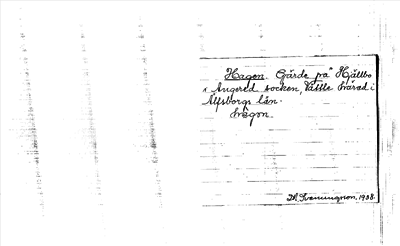 Hagen. Gärde på Hjällbo
i Angered socken, Vättle härad i
Älfsborgs län.
hàgən.
D. Svenungson. 1908.